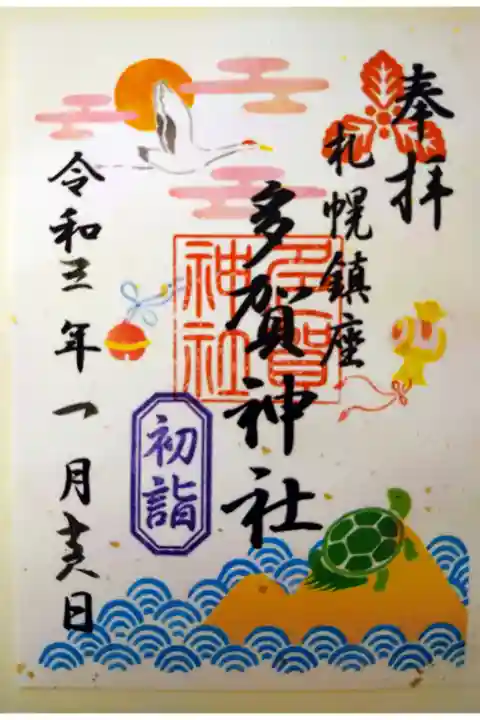 奉拝
札幌鎮座
多賀神社
多賀
神社
初詣
令和三年一月十六日